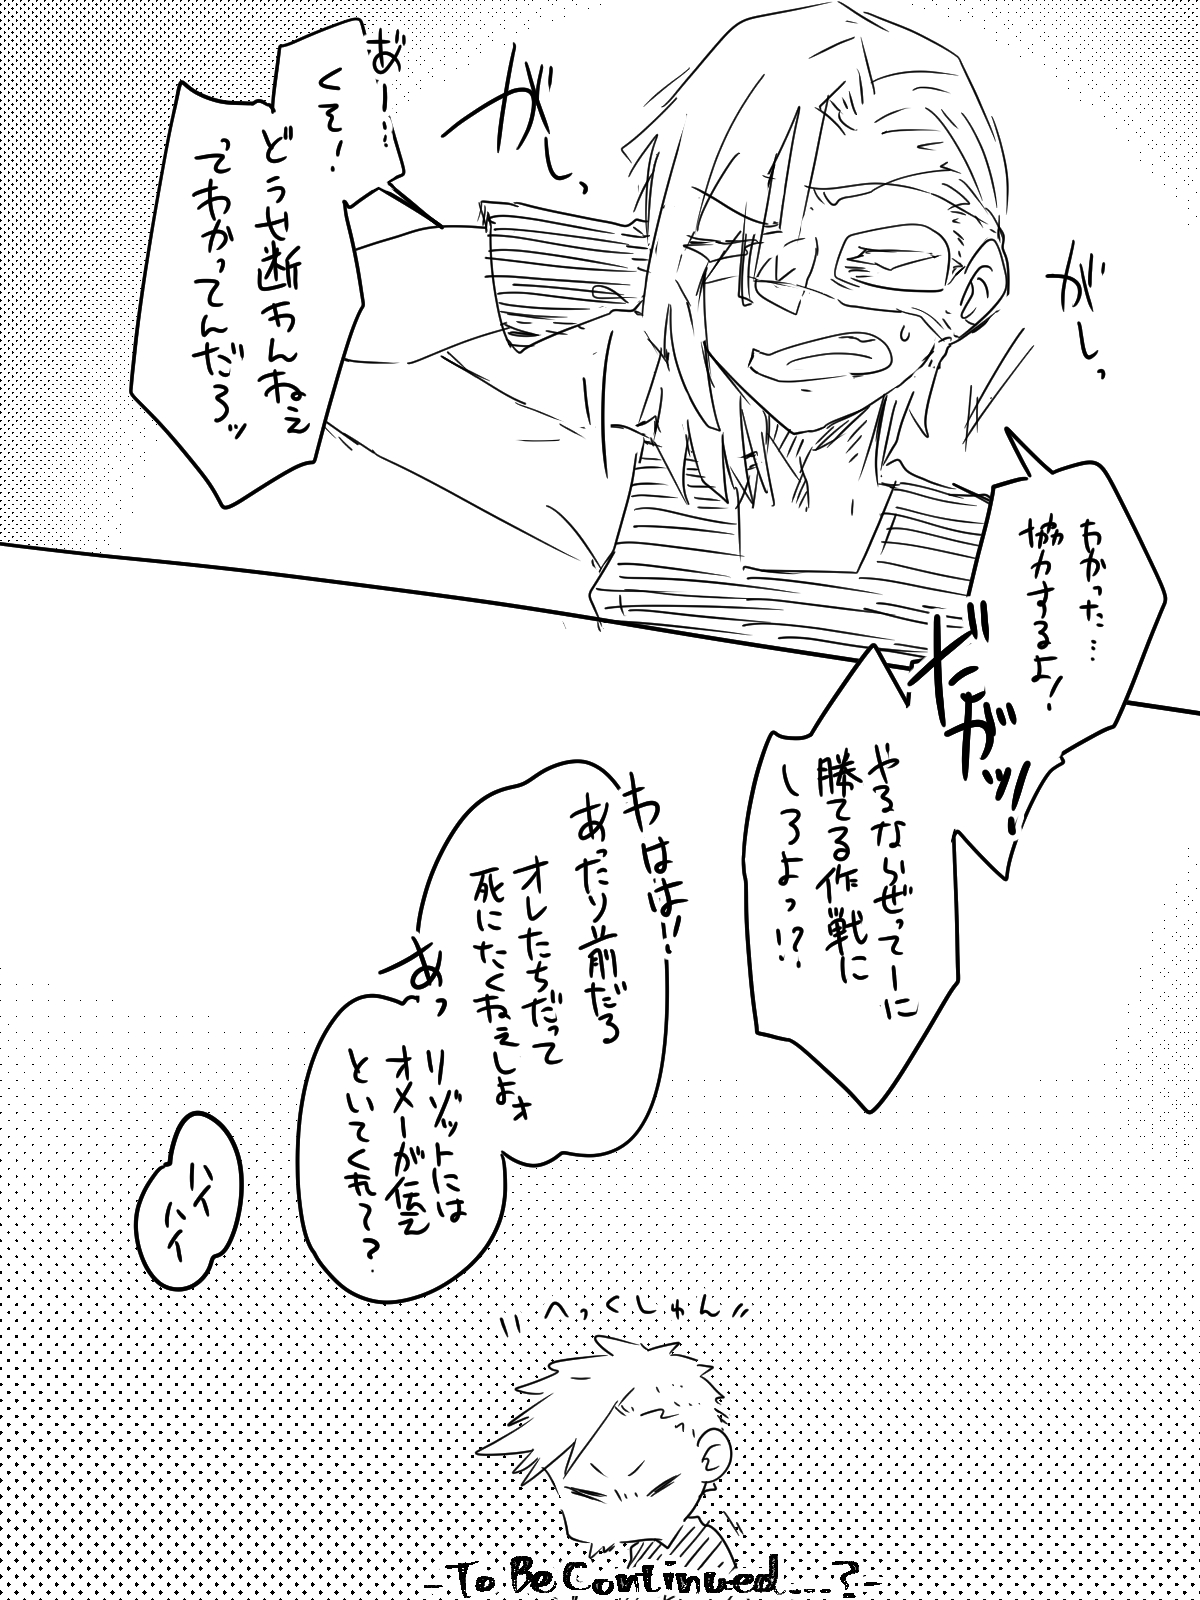 がしっ
がしっ
あ゛ー…
くそ!
どうせ断わんねえ
ってわかってんだろッ
わかった…
協力するよ!
だがッ!
やるならぜってーに
勝てる作戦に
しろよっ!?
わはは!!
あったり前だろ
オレたちだって
死にたくねぇしよォ
あっ
リゾットには
オメーが伝え
といてくれ〜?
ハイ
ハイ
へっくしゅん
-To Be Continued...?-